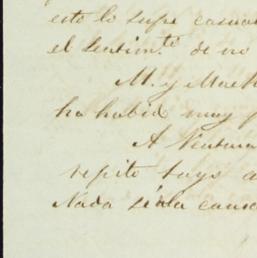 esto lo supe casua
el sentim.to de no
M. y Mach
ha habid muy
A Ventura
repito suyo a
Nada